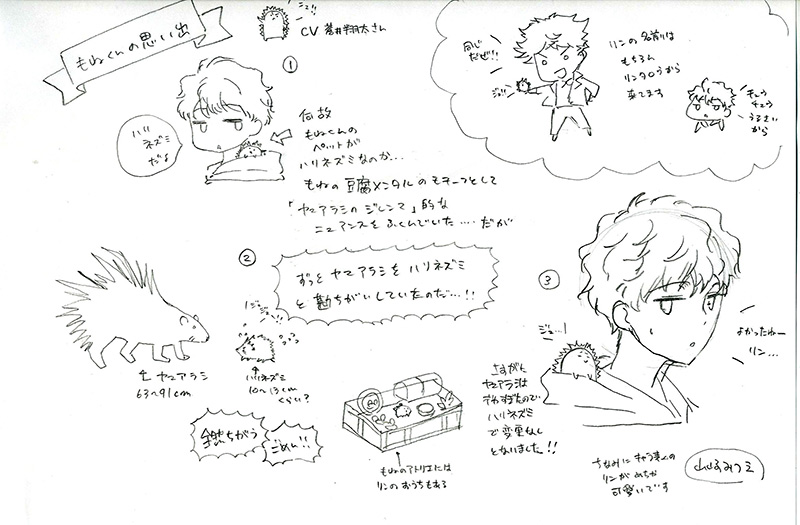 もねくんの思い出
ジュ!!
CV 蒼井翔太さん
①
ハリ
ネズミ
だよ
何故
もねくんの
ペットが
ハリネズミなのか…
もねの豆腐メンタルのモチーフとして
「ヤマアラシのジレンマ」的な
ニュアンスをふくんでいた……だが
同じ
だぜ!!
リンの名前は
もちろん
リンタロウから
来てます
キュウ
チュウ
うるさい
から
②
ずっとヤマアラシをハリネズミ
と勘ちがいしていたのだ…!!
↑ヤマアラシ
63〜91cm
ハリネズミ
10〜13cm
くらい?
全然ちがう
ごめん!!
もねのアトリエには
リンのおうちもある
③
ジュ…!
よかったねー
リン…
さすがに
ヤマアラシは
でれすぎるので
ハリネズミ
で変更なし
となりました!!
ちなみにキャラ表の
リンがめちゃ
可愛いです